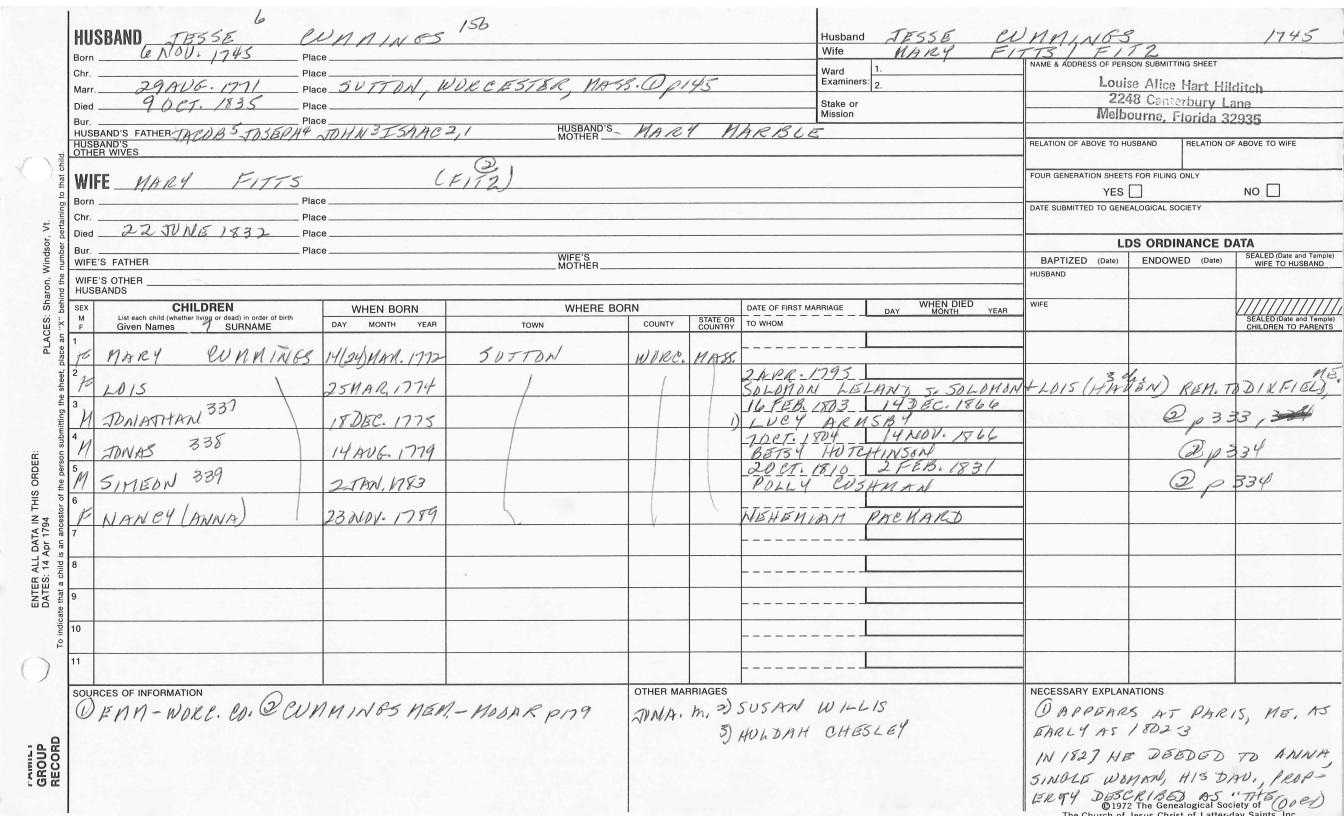 6
156
HUSBAND JESSE CUMMINGS
Born 6 NOV. 1745 Place
Chr. Place
Marr. 29 AUG. 1771 Place SUTTON, WORCESTER, MASS. ① p145
Died 9 OCT. 1835 Place
Bur. Place
HUSBAND'S FATHER JACOB 5 JOSEPH 4 JOHN 3 ISAAC 2,1 HUSBAND'S MOTHER MARY MARBLE
HUSBAND'S OTHER WIVES
②
WIFE MARY FITTS (FITZ)
Born Place
Chr. Place
Died 22 JUNE 1832 Place
Bur. Place
WIFE'S FATHER WIFE'S MOTHER
WIFE'S OTHER HUSBANDS
Husband JESSE CUMMINGS 1745
Wife MARY FITTS / FITZ
Ward Examiners: 1.
2.
Stake or Mission
NAME & ADDRESS OF PERSON SUBMITTING SHEET
Louise Alice Hart Hilditch
2248 Canterbury Lane
Melbourne, Florida 32935
RELATION OF ABOVE TO HUSBAND RELATION OF ABOVE TO WIFE
FOUR GENERATION SHEETS FOR FILING ONLY
YES NO
DATE SUBMITTED TO GENEALOGICAL SOCIETY
LDS ORDINANCE DATA
BAPTIZED (Date) ENDOWED (Date) SEALED (Date and Temple) WIFE TO HUSBAND
HUSBAND
WIFE
SEALED (Date and Temple) CHILDREN TO PARENTS
SEX M F CHILDREN WHEN BORN WHERE BORN DATE OF FIRST MARRIAGE WHEN DIED
List each child (whether living or dead) in order of birth
Given Names 7 SURNAME DAY MONTH YEAR TOWN COUNTY STATE OR COUNTRY TO WHOM DAY MONTH YEAR
1 F MARY CUMMINGS 14(24) MAR. 1772 SUTTON WORC. MASS.
2 APR. 1795
2 F LOIS 25 MAR. 1774 SOLOMON LELAND, S. SOLOMON + LOIS (HAVEN) REM. TO DIXFIELD, ME.
16 FEB. 1803 14 DEC. 1866
3 M JONATHAN 337 18 DEC. 1775 1) LUCY ARMSBY ② p 333,
7 OCT. 1804 14 NOV. 1866
4 M JONAS 338 14 AUG. 1779 BETSY HUTCHINSON ② p 334
2 OCT. 1810 2 FEB. 1831
5 M SIMEON 339 2 JAN. 1783 POLLY CUSHMAN ② p 334
6 F NANCY (ANNA) 23 NOV. 1789 NEHEMIAH PACKARD
7
8
9
10
11
SOURCES OF INFORMATION
① FMM-WORC. CO. ② CUMMINGS MEM.-MOOAR p179
OTHER MARRIAGES
JONA. M. 2) SUSAN WILLIS
3) HULDAH CHESLEY
NECESSARY EXPLANATIONS
① APPEARS AT PARIS, ME. AS
EARLY AS 1802-3
IN 1827 HE DEEDED TO ANNA,
SINGLE WOMAN, HIS DAU., PROP-
ERTY DESCRIBED AS "THE (over)
©1972 The Genealogical Society of
The Church of Jesus Christ of Latter-day Saints, Inc.
PLACES: Sharon, Windsor, Vt.
ENTER ALL DATA IN THIS ORDER:
DATES: 14 Apr 1794
To indicate that a child is an ancestor of the person submitting the sheet, place an "X" behind the number pertaining to that child.
FAMILY
GROUP
RECORD